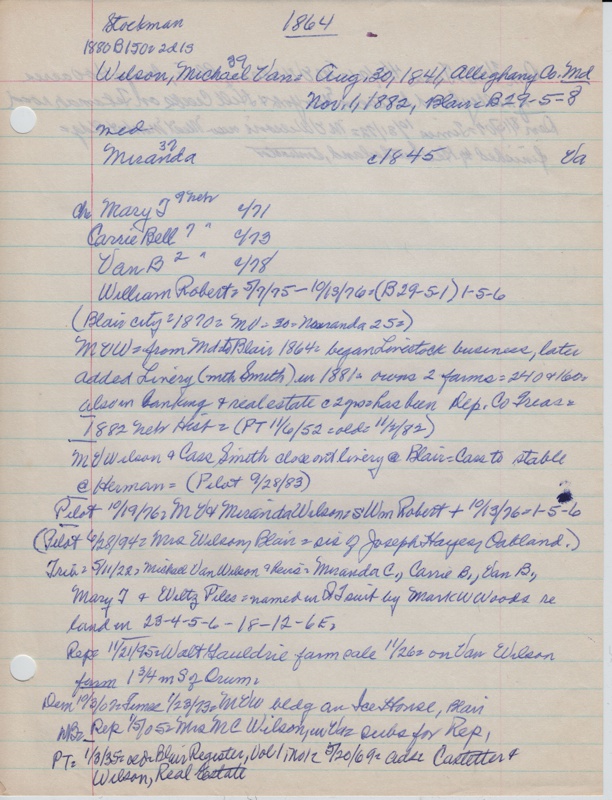 Stockman
1864
1880 B150=2d13
Wilson, Michael Van= 39 Aug, 30, 1841, Alleghany Co. Md
Nov. 1, 1882, Blair B 29-5=8
med
Miranda 37 c1845 Va
Ch. Mary T 9 Nebr c/71
Carrie Bell 7 " c/73
Van B 2 " c/78
William Robert= 5/7/75 - 10/13/76=(B29-5-1) 1-5-6
(Blair city=1870= MV=30= Miranda 25=)
MVW=from Md to Blair 1864= began Livestock business, later
added Livery (with Smith) in 1881= owns 2 farms=240 & 160=
also in banking & real estate c 2 yrs=has been Dep. Co Treas=
1882 Nebr Hist= (PT 11/6/52=old= 11/2/82)
MVWilson & Cass Smith close out livery @ Blair=Cass to stable
@ Herman= (Pilot 9/28/83)
Pilot 10/19/76= MV & Miranda Wilson=s Wm Robert + 10/13/76=1-5-6
(Pilot 6/28/94= Mrs Wilson, Blair= sis of Joseph Hayes, Oakland.)
Trib= 5/11/22= Michael Van Wilson & Heirs= Miranda C., Carrie B., Van B.,
Mary T & Wiltz Piles=named in suit by Mark W Woods re
land in 23-4-5-6-18-12-6E,
Rep= 11/21/95=Walt Gauldrie farm sale 11/26= on Van Wilson
farm 1 3/4 m S of Orum=
Dem 10/3/07=Times 1/23/73=MVW bldg an Ice House, Blair
Rep 1/5/05=Mrs MC Wilson, subs for Rep,
PT= 1/3/35=old= Blair Register, Vol 1, no 1= 5/20/69= adv Castetter &
Wilson, Real Estate